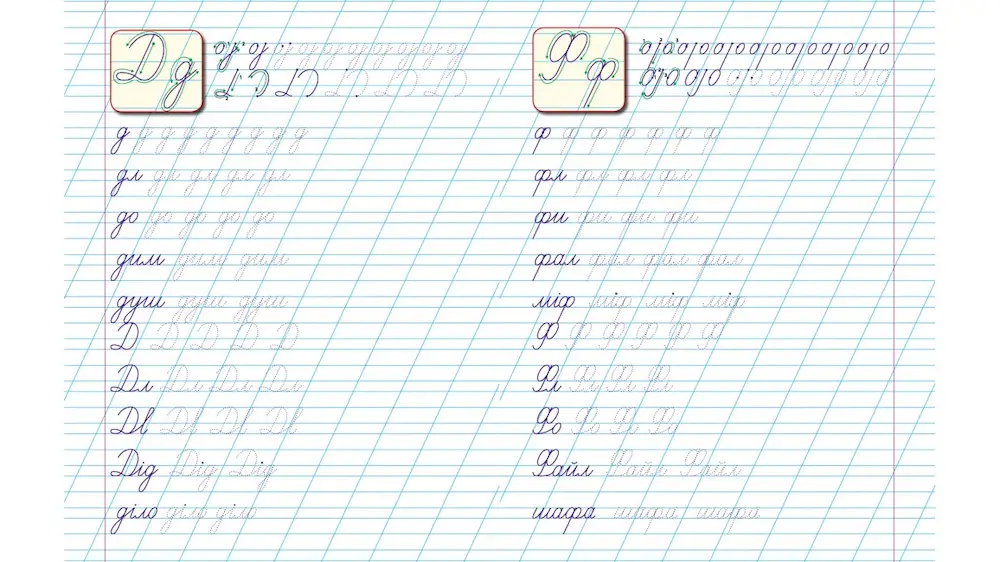 Д д
д д д д д д д д д
дл дл дл дл дл
до до до до до
дим дим дим
душ душ душ
Д Д Д Д Д
Дл Дл Дл Дл
Дв Дв Дв Дв
Дід Дід Дід
діло діло діло
Ф ф
ф ф ф ф ф ф ф
фл фл фл фл
фи фи фи фи
фал фал фал фал
міф міф міф міф
Ф Ф Ф Ф Ф Ф
Фл Фл Фл Фл
Фо Фо Фо Фо
Файл Файл Файл
шафа шафа шафа